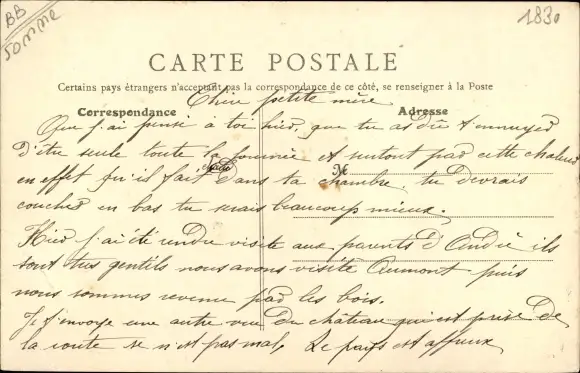 BB
SOMME
1830
CARTE POSTALE
Certains pays étrangers n'acceptant pas la correspondance de ce côté, se renseigner à la Poste
Correspondance
Adresse
Chère petite mère
Que j'ai pensé à toi hier, que tu as dû t'ennuyer
D'être seule toute la journée et surtout par cette chaleur
en effet qu'il fait dans ta chambre, tu devrais
coucher en bas tu serais beaucoup mieux.
Hier j'ai été rendre visite aux parents d'André ils
sont très gentils nous avons visité Aumont puis
nous sommes revenu par les bois.
Je t'envoye une autre vue du château qui est prise de
la route ce n'est pas mal, Le pays est affreux